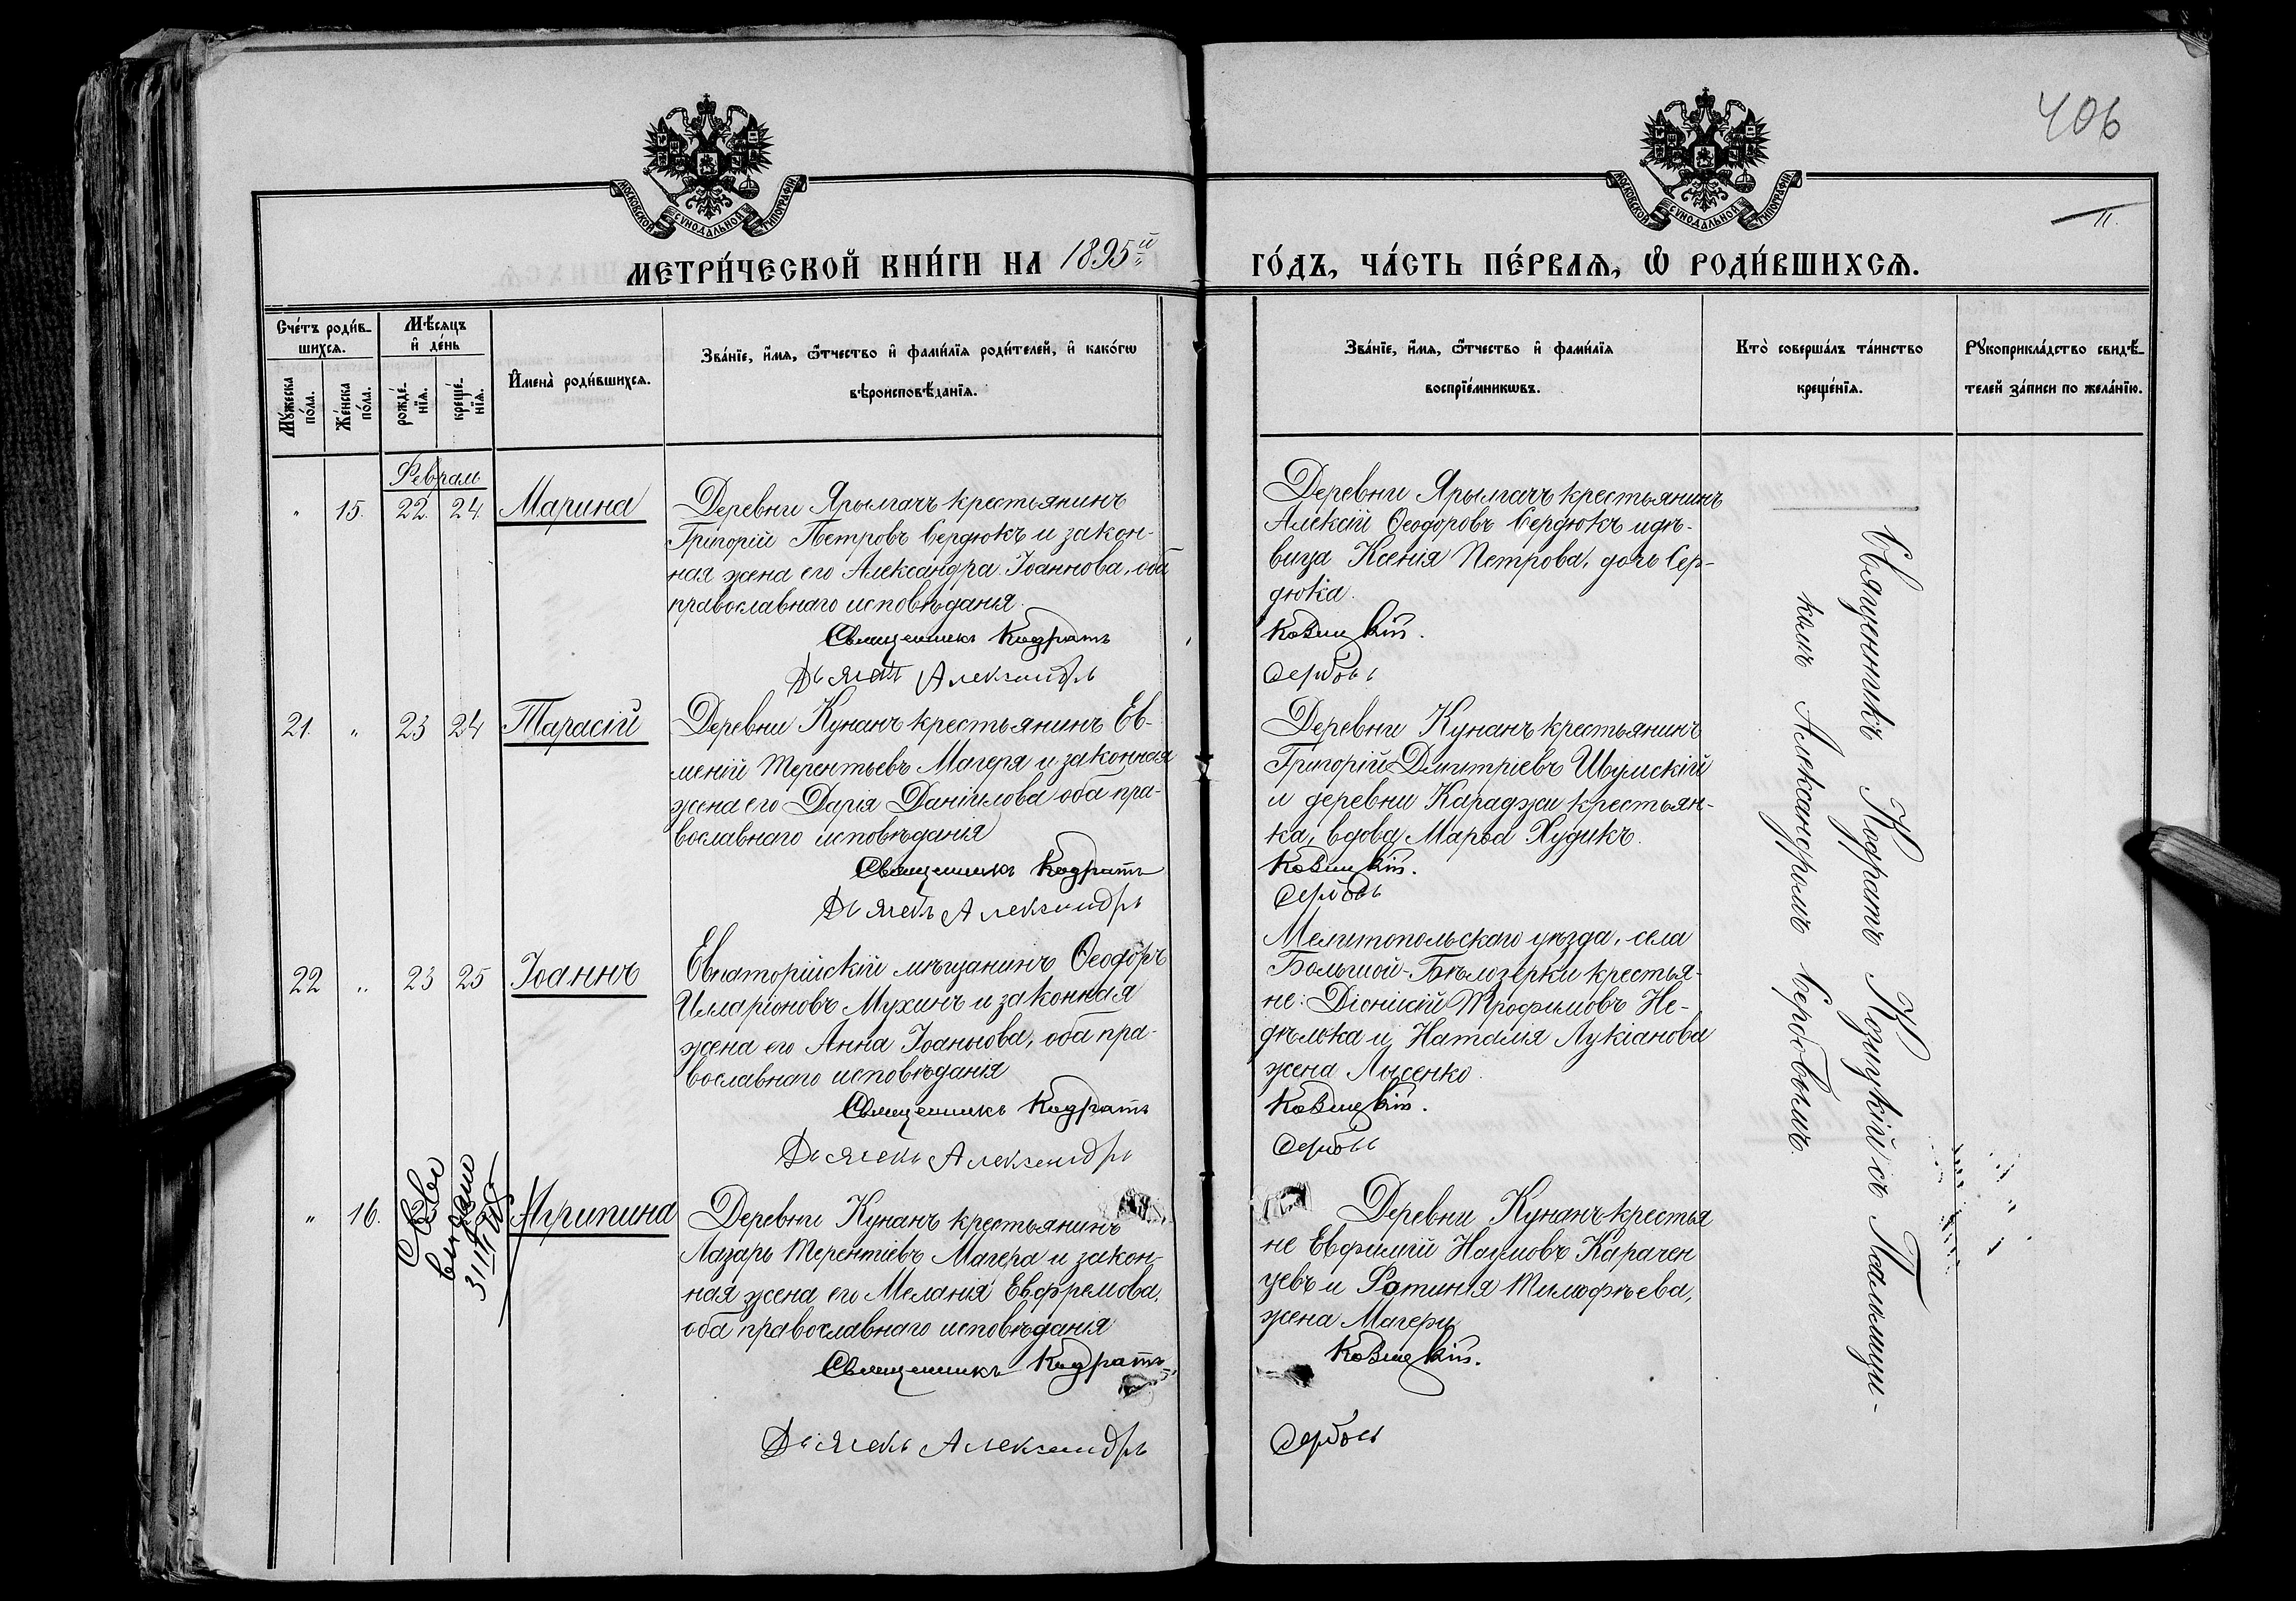 406
МОСКОВСКОЙ СѴНОДАЛЬНОЙ ТИПОГРАФІИ
МОСКОВСКОЙ СѴНОДАЛЬНОЙ ТИПОГРАФІИ
11.
МЕТРИ́ЧЕСКОЙ КНИ́ГИ НА 1895й
ГО́ДЪ, ЧА́СТЬ ПЕ́РВАѦ, Ѽ РОДИ́ВШИХСѦ.
Сче́тъ роди́в-
шихсѧ.
Мѣ́сѧцъ
и҆ де́нь
Мꙋ́жеска
по́ла.
Же́нска
по́ла.
рожде́-
нїѧ.
креще́-
нїѧ.
И҆мена̀ роди́вшихсѧ.
Зва́нїе, и҆́мѧ, ѻ҆́тчество и҆ фами́лїѧ роди́телей, и҆ како́гѡ
вѣроисповѣ́данїѧ.
Зва́нїе, и҆́мѧ, ѻ҆́тчество и҆ фами́лїѧ
воспрїе́мникѡвъ.
Кто̀ соверша́лъ та́инство
креще́нїѧ.
Рꙋкоприкла́дство свидѣ́-
телей за́писи по жела́нїю.
Февраль
" 15. 22. 24. Марина
Деревни Ярылгачъ крестьянинъ
Григорій Петровъ Сердюкъ и закон-
ная жена его Александра Іоаннова, оба
православнаго исповѣданія.
Священникъ Кодратъ
Дьячекъ Александръ
Деревни Ярылгачъ крестьянинъ
Алексій Ѳеодоровъ Сердюкъ и дѣ-
вица Ксенія Петрова, дочь Сер-
дюка.
Козицкій.
Сербовъ
21. " 23 24 Тарасій
Деревни Кунанъ крестьянинъ Ев-
меній Терентьевъ Магеря и законная
жена его Дарія Даніилова оба пра-
вославнаго исповѣданія
Священникъ Кодратъ
Дьячекъ Александръ
Деревни Кунанъ крестьянинъ
Григорій Дмитріевъ Шумскій
и деревни Караджи крестьян-
ка, вдова Марѳа Худикъ.
Козицкій.
Сербовъ
22 " 23 25 Іоаннъ
Евпаторійскій мѣщанинъ Ѳеодоръ
Илларіоновъ Мухинъ и законная
жена его Анна Іоаннова, оба пра-
вославнаго исповѣданія
Священникъ Кодратъ
Дьячекъ Александръ
Мелитопольскаго уѣзда, села
Большой-Бѣлозерки крестья-
не: Діонисій Трофимовъ Не-
дѣлька и Наталія Лукіанова
жена Лысенко.
Козицкій.
Сербовъ
" 16. Агрипина
Выдано
Деревни Кунанъ крестьянинъ
Лазарь Терентіевъ Магера и закон-
ная жена его Меланія Евфремова,
оба православнаго исповѣданія
Священникъ Кодратъ
Дьячекъ Александръ
Деревни Кунанъ крестья
не Евфимій Наумовъ Карачен
цевъ и Фотинія Тимофѣева,
жена Магеры
Козицкій.
Сербовъ
Священникъ Кодратъ Козицкій съ Псаломщи-
комъ Александромъ Сербовымъ.